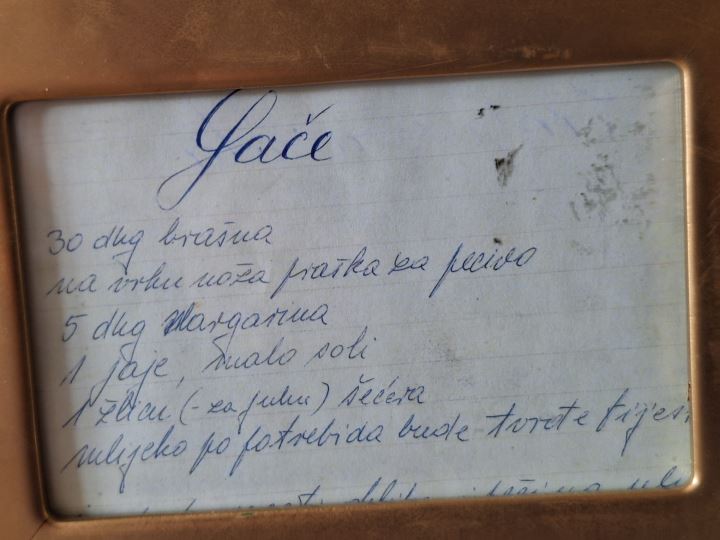 Gaće
30 dkg brašna
na vrhu noža praška za pecivo
5 dkg Margarina
1 jaje, malo soli
1 žlicu (-za juhu) šećera
mlijeko po potrebi da bude tvrđe tijes